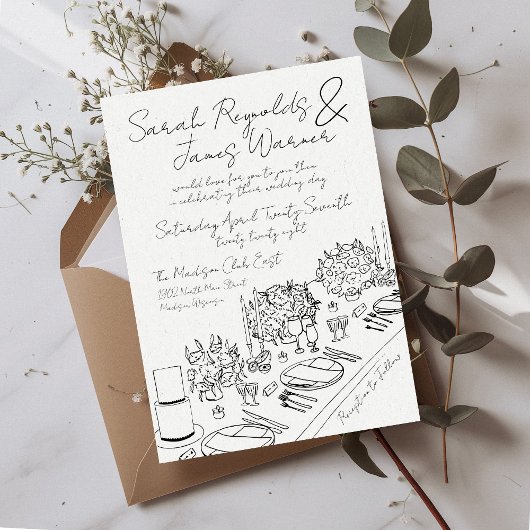 Sarah Reynolds &
James Warner
would love for you to join them
in celebrating their wedding day
Saturday April Twenty Seventh
twenty twenty eight
The Madison Club East
1802 North Main Street
Madison, Wisconsin
Reception to Follow